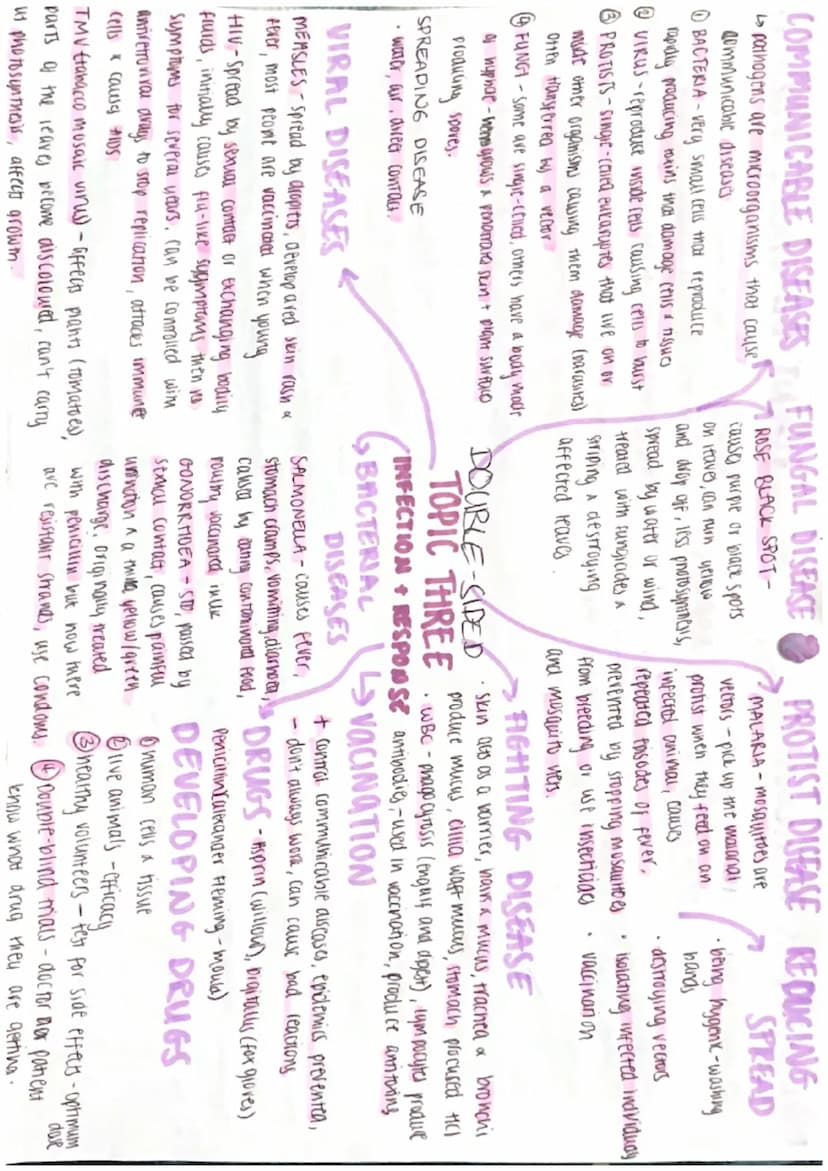 COMMUNICABLE DISEASES
↳ pathogens are microorganisms that cause
communicable diseases
① BACTERIA - very small cells that reproduce
rapidly producing toxins that damage cells & tissues
② VIRUS - reproduce inside cells causing cells to burst
③ PROTISTS - single-celled eukaryotes that live on or
inside other organisms causing them damage (parasites)
often transferred by a vector
④ FUNGI - some are single-celled, others have a body made
of hyphae - grows & penetrate skin + plant surface
producing spores.
SPREADING DISEASE
· water, air, direct contact.
FUNGAL DISEASE
ROSE BLACK SPOT -
causes purple or black spots
on leaves, can turn yellow
and drop off, less photosynthesis,
spread by water or wind,
treated with fungicides &
striping & destroying
affected leaves.
PROTIST DISEASE
MALARIA - mosquitoes are
vectors - pick up the malarial
protist when they feed on an
infected animal, causes
repeated episodes of fever,
prevented by stopping mosquitoes
from breeding or use insecticides
and mosquito nets.
REDUCING
SPREAD
· being hygenic - washing
hands
· destroying vectors
· isolating infected individuals
· vaccination
DOUBLE-SIDED
TOPIC THREE
INFECTION + RESPONSE
VIRAL DISEASES
MEASLES - spread by droplets, develop a red skin rash &
fever, most people are vaccinated when young
HIV - spread by sexual contact or exchanging bodily
fluids, initially causes flu-like symptoms then no
symptoms for several years. can be controlled with
antiretroviral drugs to stop replication, attacks immune
cells & cause AIDS
TMV (tobacco mosaic virus) - affects plants (tomatoes),
parts of the leaves become discoloured, can't carry
us photosynthesis, affects growth.
BACTERIAL
DISEASES
SALMONELLA - causes fever,
stomach cramps, vomiting, diarrhoea,
caused by eating contaminated food,
poultry vaccinated in UK
GONORRHOEA - STD, passed by
sexual contact, causes painful
urination & a thick yellow/green
discharge, originally treated
with penicillin but now there
are resistant strands, use condoms.
FIGHTING DISEASE
· skin acts as a barrier, hairs & mucus, trachea & bronchi
produce mucus, cilia waft mucus, stomach produced HCl
· WBC - phagocytosis (engulf and digest), lymphocytes produce
antibodies - used in vaccination, produce antitoxins
VACINATION
+ control communicable diseases, epidemics prevented,
- don't always work, can cause bad reactions
DRUGS - Asprin (willow), Digitalis (foxgloves)
Penicillin (Alexander Fleming - mould)
DEVELOPING DRUGS
① human cells & tissue
② live animals - efficacy
③ healthy volunteers - test for side effects - optimum
dose
④ Double-blind trials - doctor nor patient
know what drug they are getting.